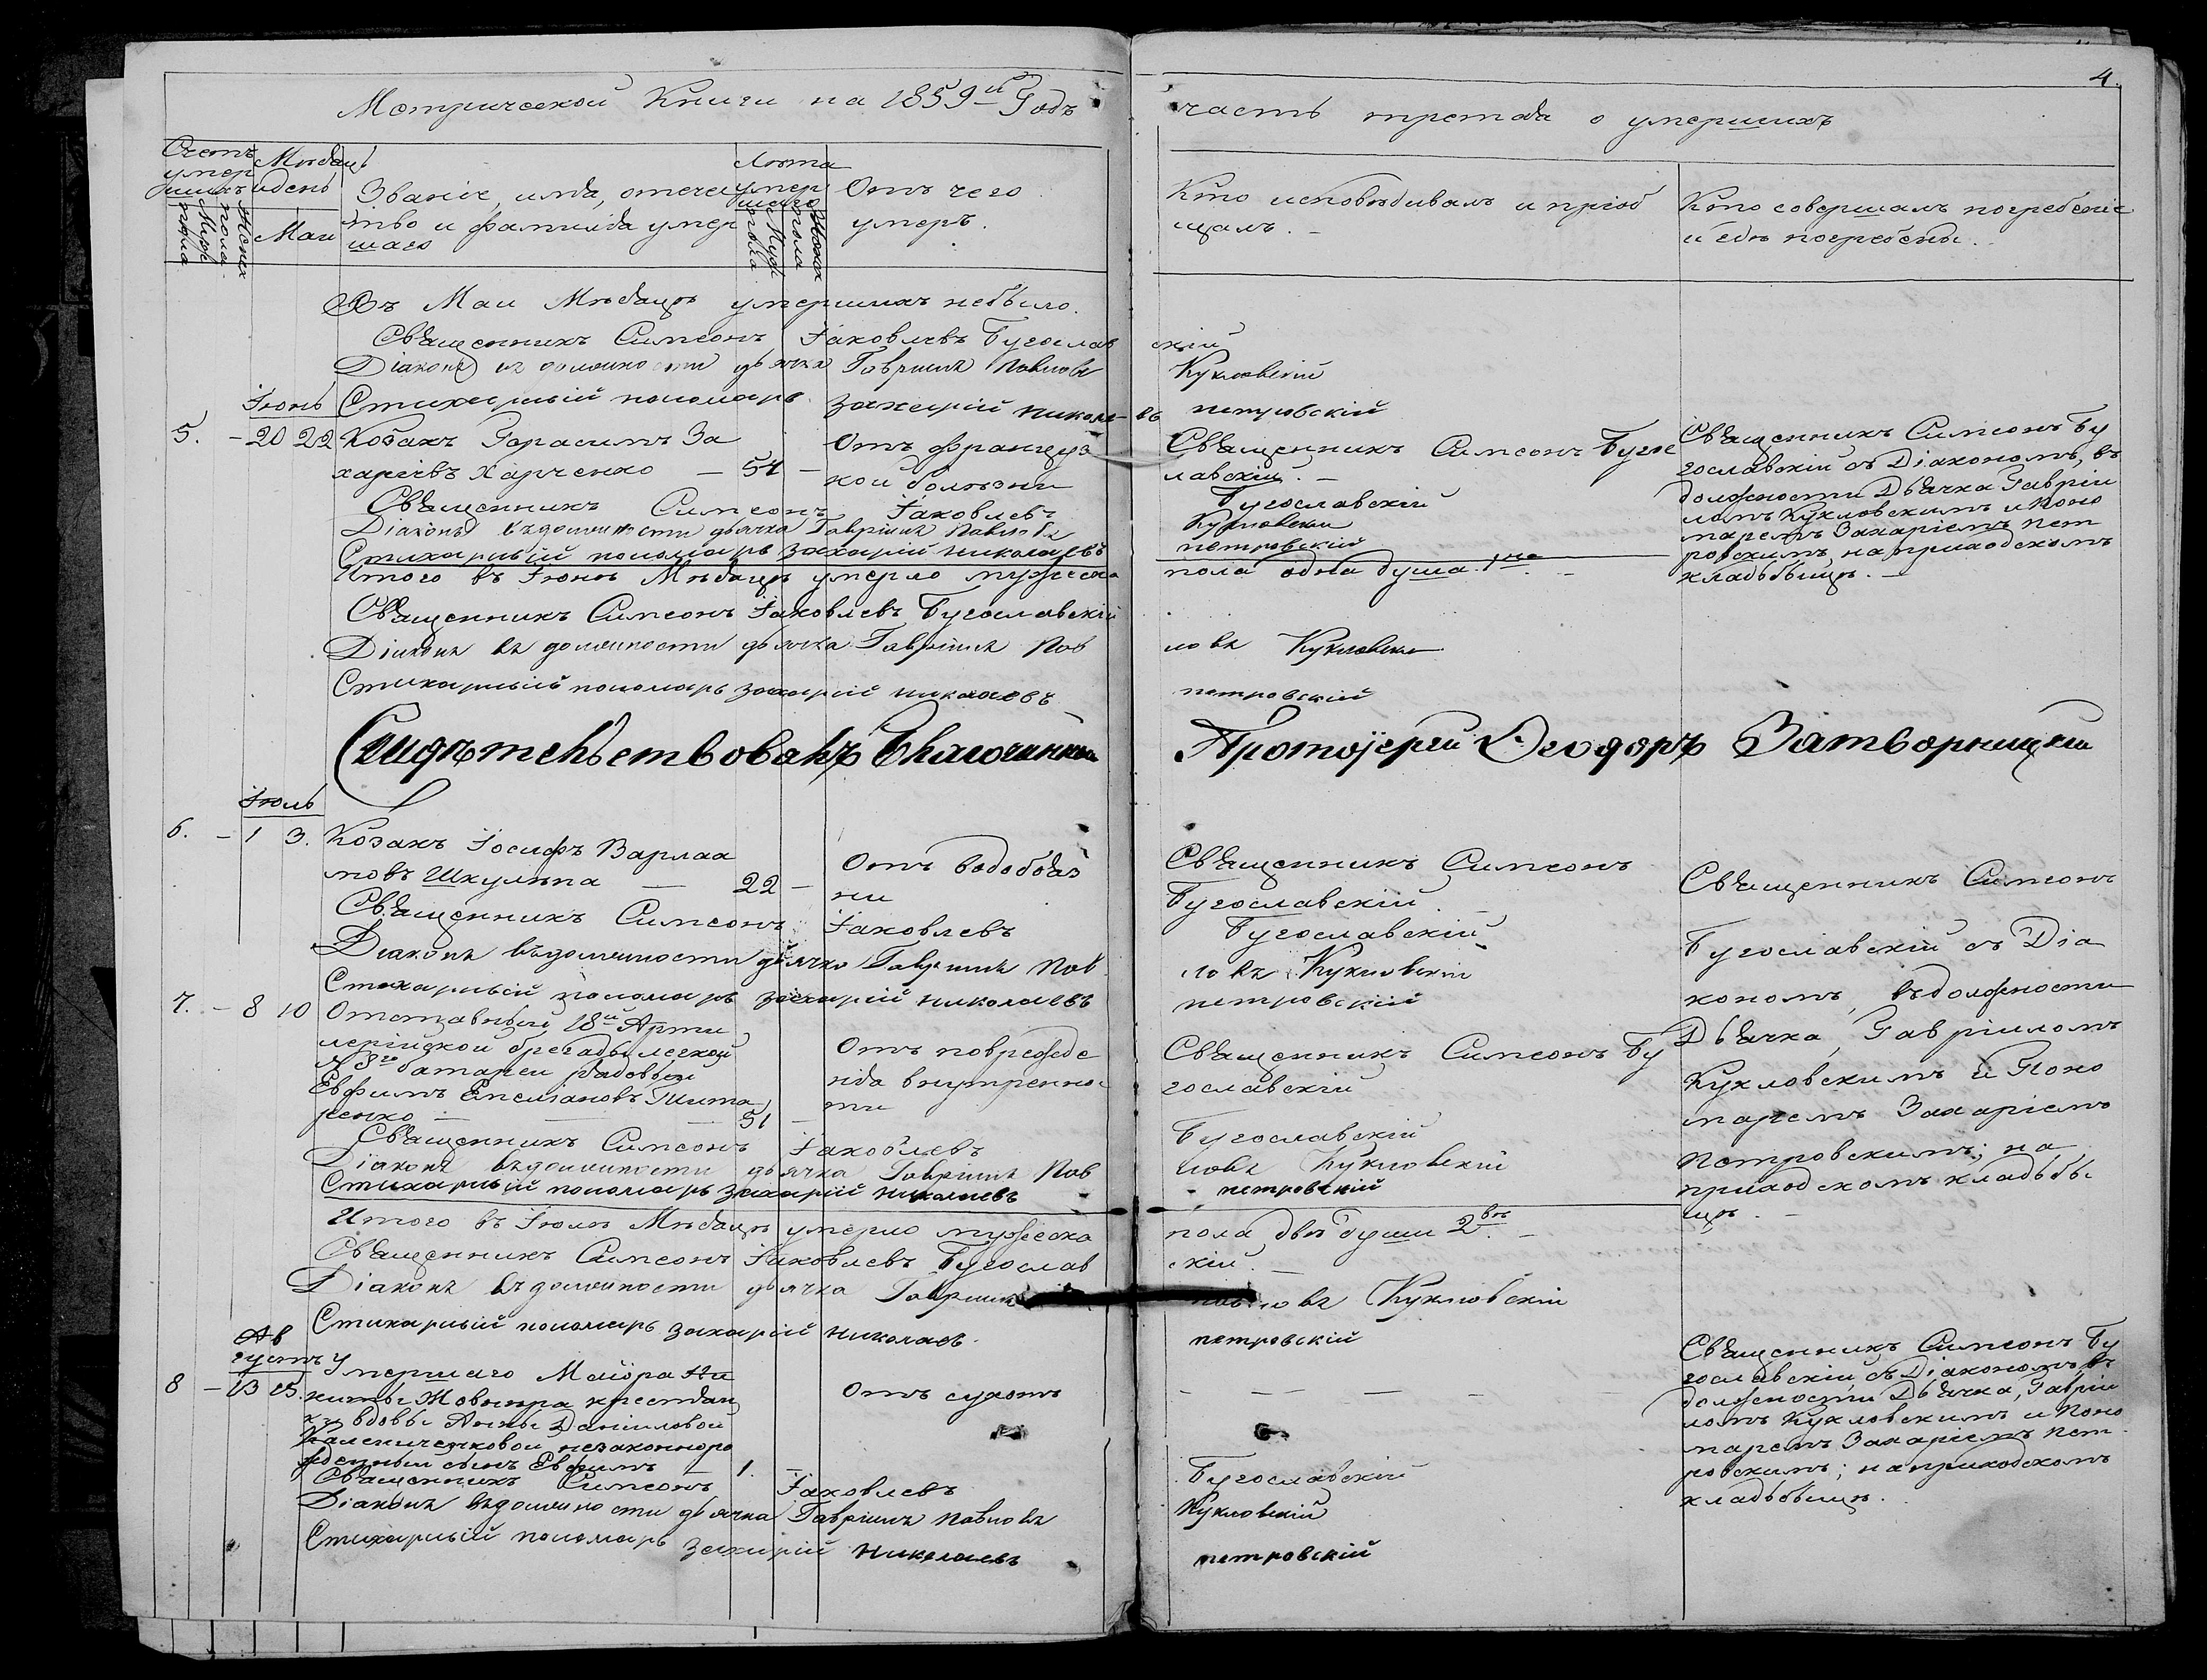 4.
Метрической Книги на 1859й Годъ
часть третья о умершихъ
Счетъ умер шихъ
Мужск пола
Женск пола
Мѣсяцъ и день
Маи
Званіе, имя, отечес
тво и фамилія умер
шаго
Лѣта умер шаго
Мужск пола
Женск пола
Отъ чего
умеръ.
Кто исповѣдывалъ и пріоб
щалъ. –
Кто совершалъ погребеніе
и гдѣ погребены.
Въ Маи Мѣсяцѣ умершихъ небыло.
Священникъ Симеонъ Іаковлевъ Бугослав скій
Діаконъ въ должности дьячка Гавріилъ Павловъ Кукловскій
Стихарный пономарь Захарій Никола евъ петровскій
Іюнь
5. – 20 22 Козакъ Герасимъ За
харіевъ Харченко – 54 –
Отъ француз
кой болѣзни
Священникъ Симеонъ Бугос
лавскій. –
Священникъ Симеонъ Бу
гославскій съ Діакономъ, въ
должности Дьячка Гавріи
ломъ Кукловскимъ и Поно
маремъ Захаріемъ Пет
ровскимъ, на приходскомъ
кладьбищѣ. –
Священникъ Симеонъ Іаковлевъ Бугославскій
Діаконъ въ должности дьячка Гавріилъ Павловъ Кукловскій
Стихарный пономарь Захарій Николаевъ петровскій
Итого въ Іюнѣ Мѣсяцѣ умерло мужеска пола одна душа. 1на –
Священникъ Симеонъ Іаковлевъ Бугославскій
Діаконъ въ должности дьячка Гавріилъ Пав ловъ Кукловскій
Стихарный пономарь Захарій Николаевъ петровскій
Свидѣтельствовалъ Благочинный Протоіерей Ѳеодоръ Затворницкій
Іюль
6. – 1 3. Козакъ Іосифъ Варлаа
мовъ Шкулѣпа – 22 –
Отъ водобояз
ни
Священникъ Симеонъ
Бугославскій –
Священникъ Симеонъ
Бугославскій съ Діа
кономъ, въ должности
Дьячка, Гавріиломъ
Кукловскимъ и Поно
маремъ Захаріемъ
Петровскимъ; на
приходскомъ кладьби
щѣ. –
Священникъ Симеонъ Іаковлевъ Бугославскій
Діаконъ въ должности дьячка Гавріилъ Пав ловъ Кукловскій
Стихарный пономарь Захарій Николаевъ петровскій
7. – 8 10 Отставный 18й Арти
лерійской бригады легкой
№ 8го батареи рядовый
Евфимъ Епифановъ
ренко – – 51 –
Отъ поврежде
нія внутреннос
ти
Священникъ Симеонъ Бу
гославскій
Священникъ Симеонъ Іаковлевъ Бугославскій
Діаконъ въ должности дьячка Гавріилъ Пав ловъ Кукловскій
Стихарный пономарь Захарій Николаевъ петровскій
Итого въ Іюлѣ Мѣсяцѣ умерло мужеска пола двѣ души 2вѣ. –
Священникъ Симеонъ Іаковлевъ Бугослав скій. –
Діаконъ въ должности дьячка Гавріилъ Павловъ Кукловскій
Стихарный пономарь Захарій Николаевъ петровскій
Ав
густъ
8 – 13 15. Умершаго Маіора Ни
киты крестьян
ки вдовы Анны Даниловой
Калениченковой незаконноро
жденный сынъ Евфимъ – 1. –
Отъ сухотъ
– – – – –
Священникъ Симеонъ Бу
гославскій съ Діакономъ въ
должности Дьячка, Гавріи
ломъ Кукловскимъ и Поно
маремъ Захаріемъ Пет
ровскимъ; на приходскомъ
кладьбищѣ.
Священникъ Симеонъ Іаковлевъ Бугославскій
Діаконъ въ должности дьячка Гавріилъ Павловъ Кукловскій
Стихарный пономарь Захарій Николаевъ петровскій